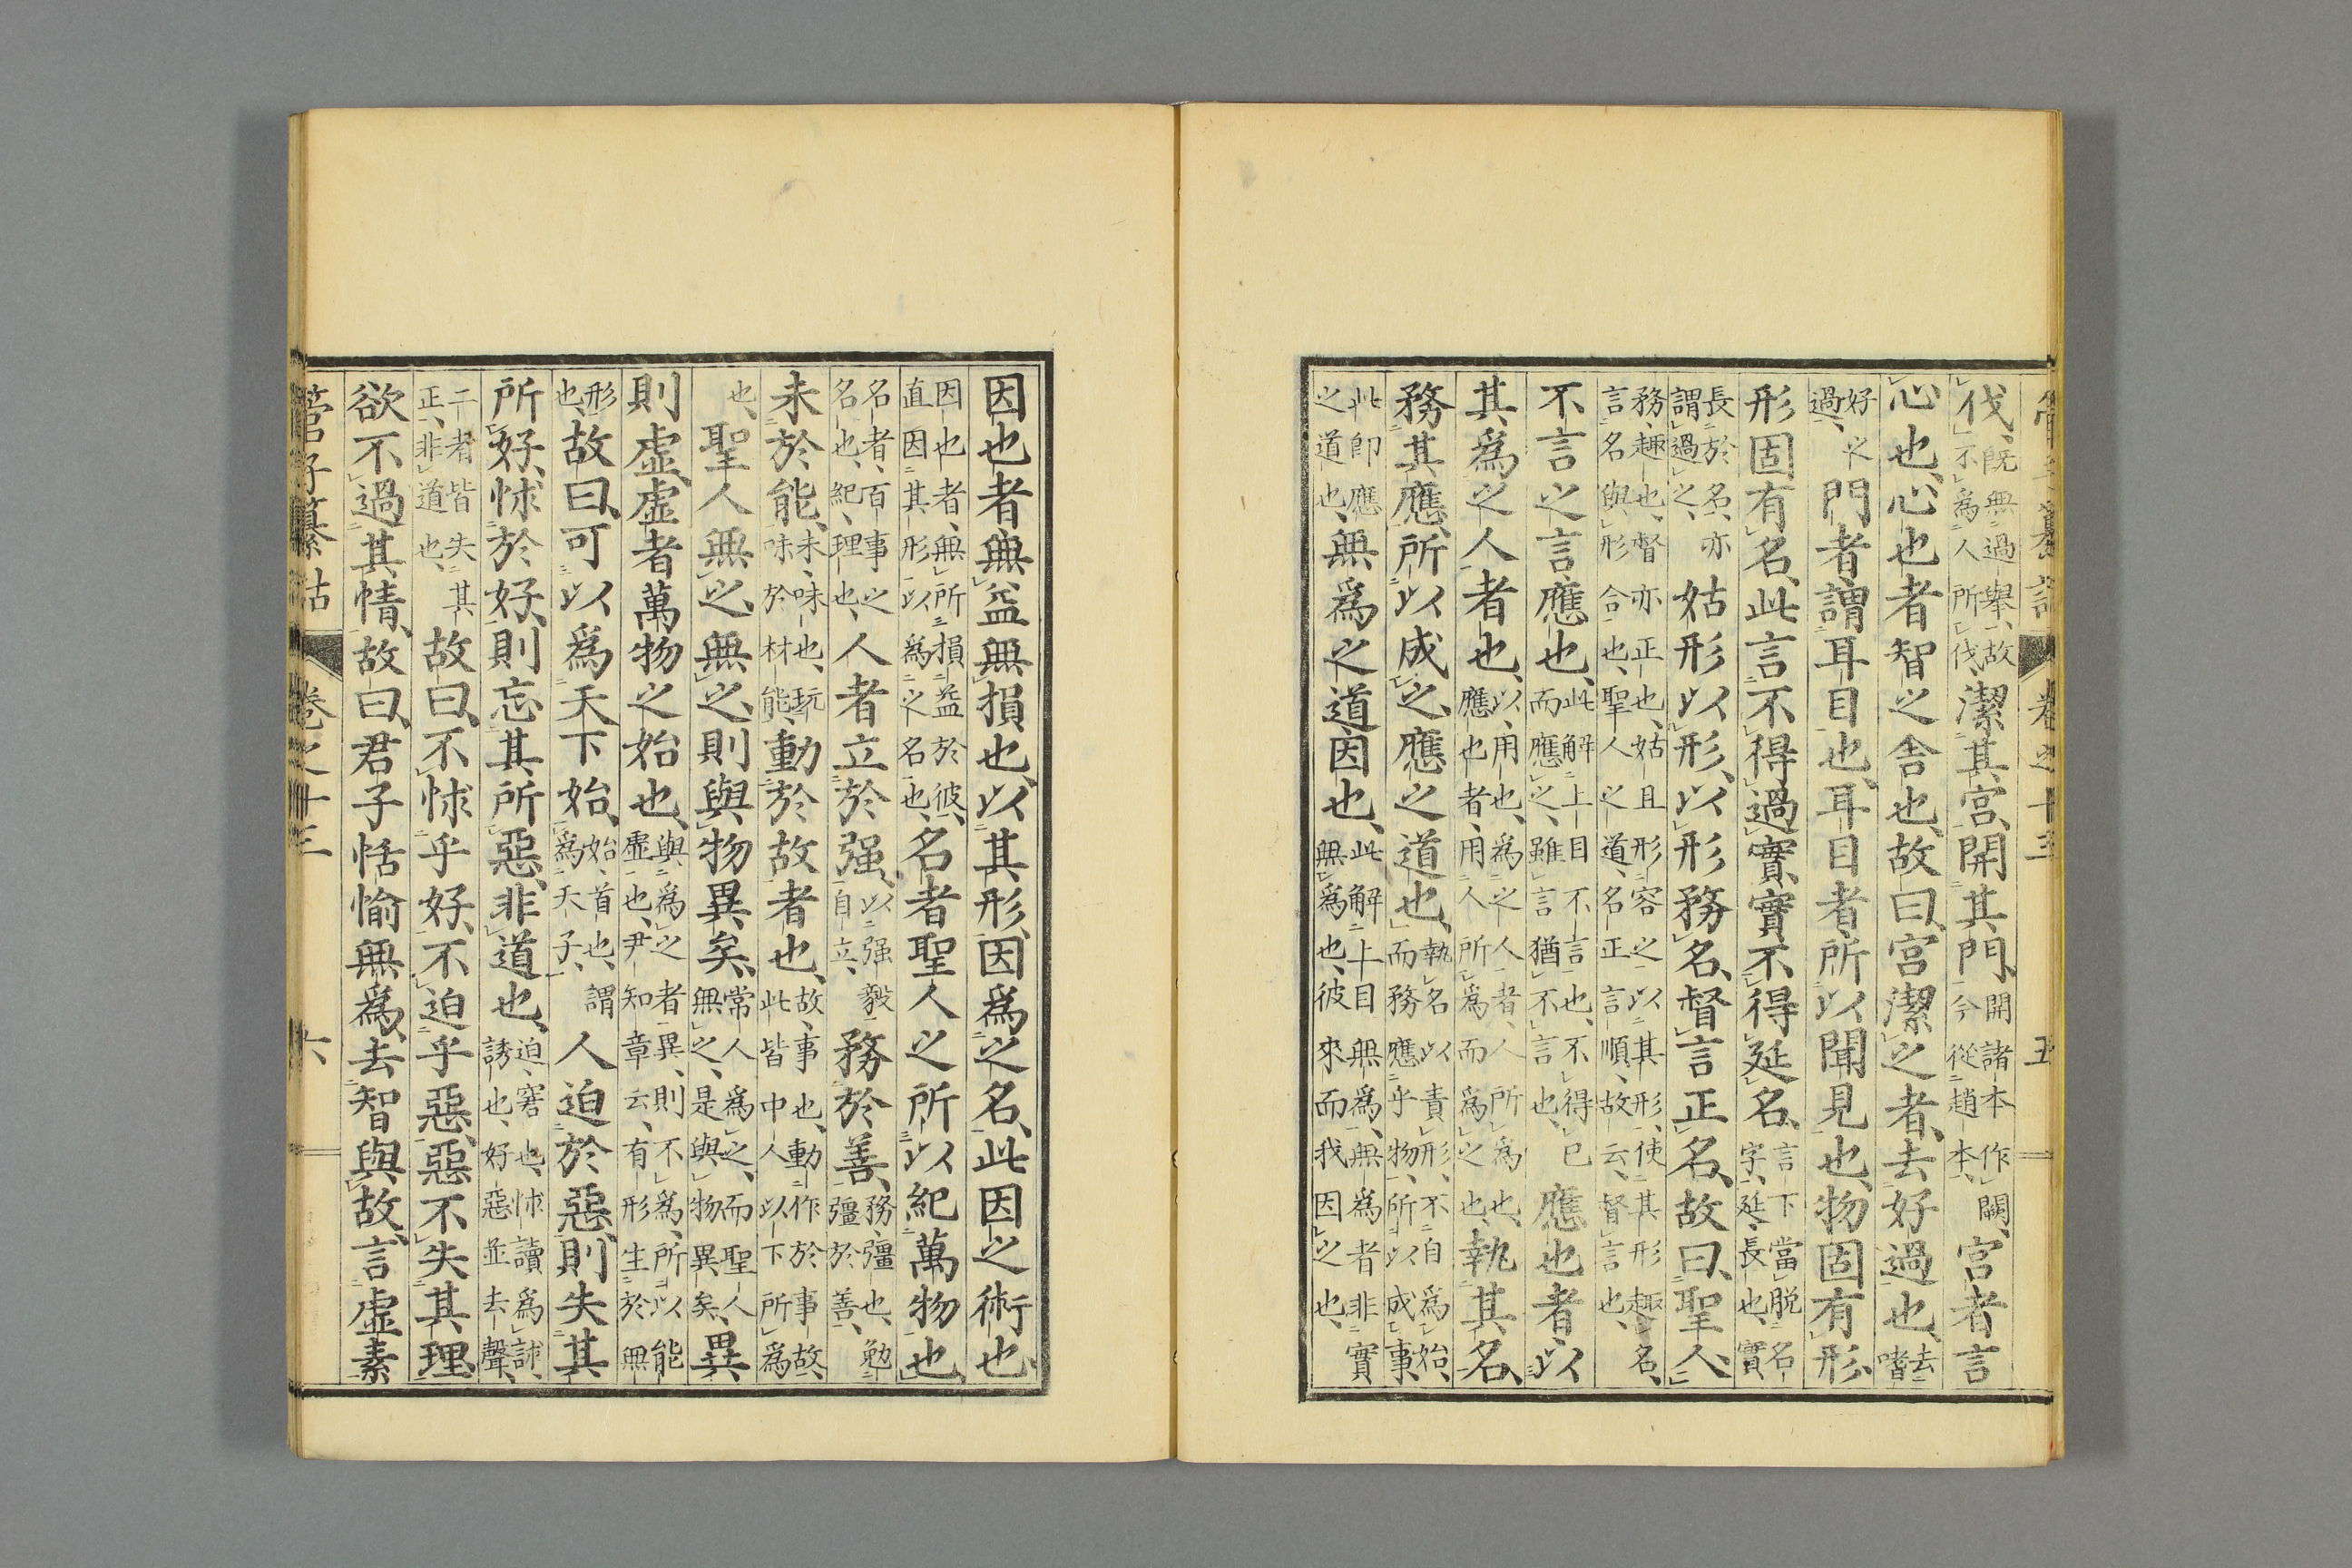 管子纂詁 卷之十三 五
伐、既無過舉、故不爲人所伐、潔其宮、開其門、開諸本作闕、今從趙本、宮者言
心也、心也者智之舍也、故曰、宮潔之者、去好過也、去嗜
好之過、門者謂耳目也、耳目者、所以聞見也、物固有形、
形固有名、此言不得過實、實不得延名、言下當脫名字、延、長也、實
長於名、亦謂過之、姑形以形、以形務名、督言正名、故曰、聖人、
務、趣也、督亦正也、姑且形容之以其形、使其形趣名、言名與形合也、聖人之道、名正言順、故云、督言也、
不言之言應也、此解上目不言也、不得已而應之、雖言猶不言也、應也者、以
其爲之人者也、以、用也、爲之人者、人所爲也、應也者、用人所爲而爲之也、執其名、
務其應、所以成之、應之道也、執名以責形、不自爲始、而務應乎物、所以成事、
此卽應之道也、無爲之道因也、此解上目無爲、無爲者非實無爲也、彼來而我因之也、
因也者、無益無損也、以其形、因爲之名、此因之術也、
因也者、無所損益於彼、直因其形以爲之名也、名者聖人之所以紀萬物也、
名者、百事之名也、紀、理也、人者立於强、以强毅自立、務於善、務、彊也、勉彊於善、
未於能、未、味也、玩味於材能、動於故者也、故、事也、動作於事故、此皆中人以下所爲
也、聖人無之、無之、則與物異矣、常人爲之、而聖人無之、是與物異矣、異
則虛、虛者萬物之始也、與爲之者異、則不爲、所以能虛也、尹知章云、有形生於無
形也、故曰、可以爲天下始、始、首也、謂爲天子、人迫於惡、則失其
所好、怵於好、則忘其所惡、非道也、迫、窘也、怵讀爲訹、誘也、好惡並去聲、
二者皆失其正、非道也、故曰、不怵乎好、不迫乎惡、惡不失其理、
欲不過其情、故曰、君子恬愉無爲、去智與故、言虛素
管子纂詁 卷之十三 六